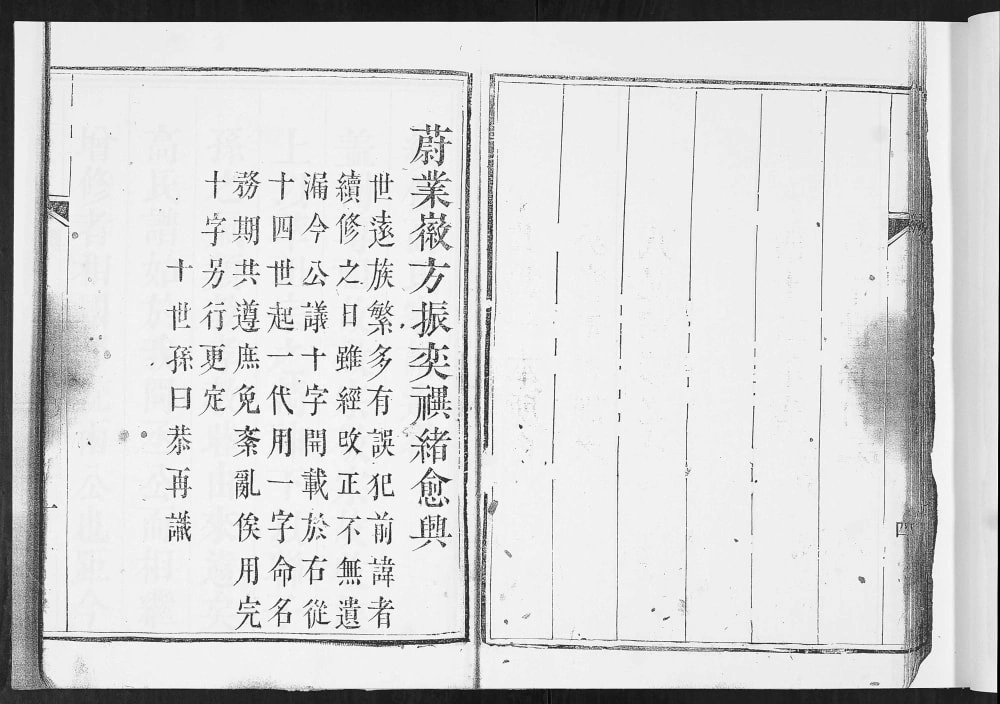 四
蔚業徽方振奕禩緒愈興
世遠族繁多有誤犯前諱者
續修之日雖經改正不無遺
漏今公議十字開載於右從
十四世起一代用一字命名
務期共遵庶免紊亂俟用完
十字另行更定
十世孫曰恭再識